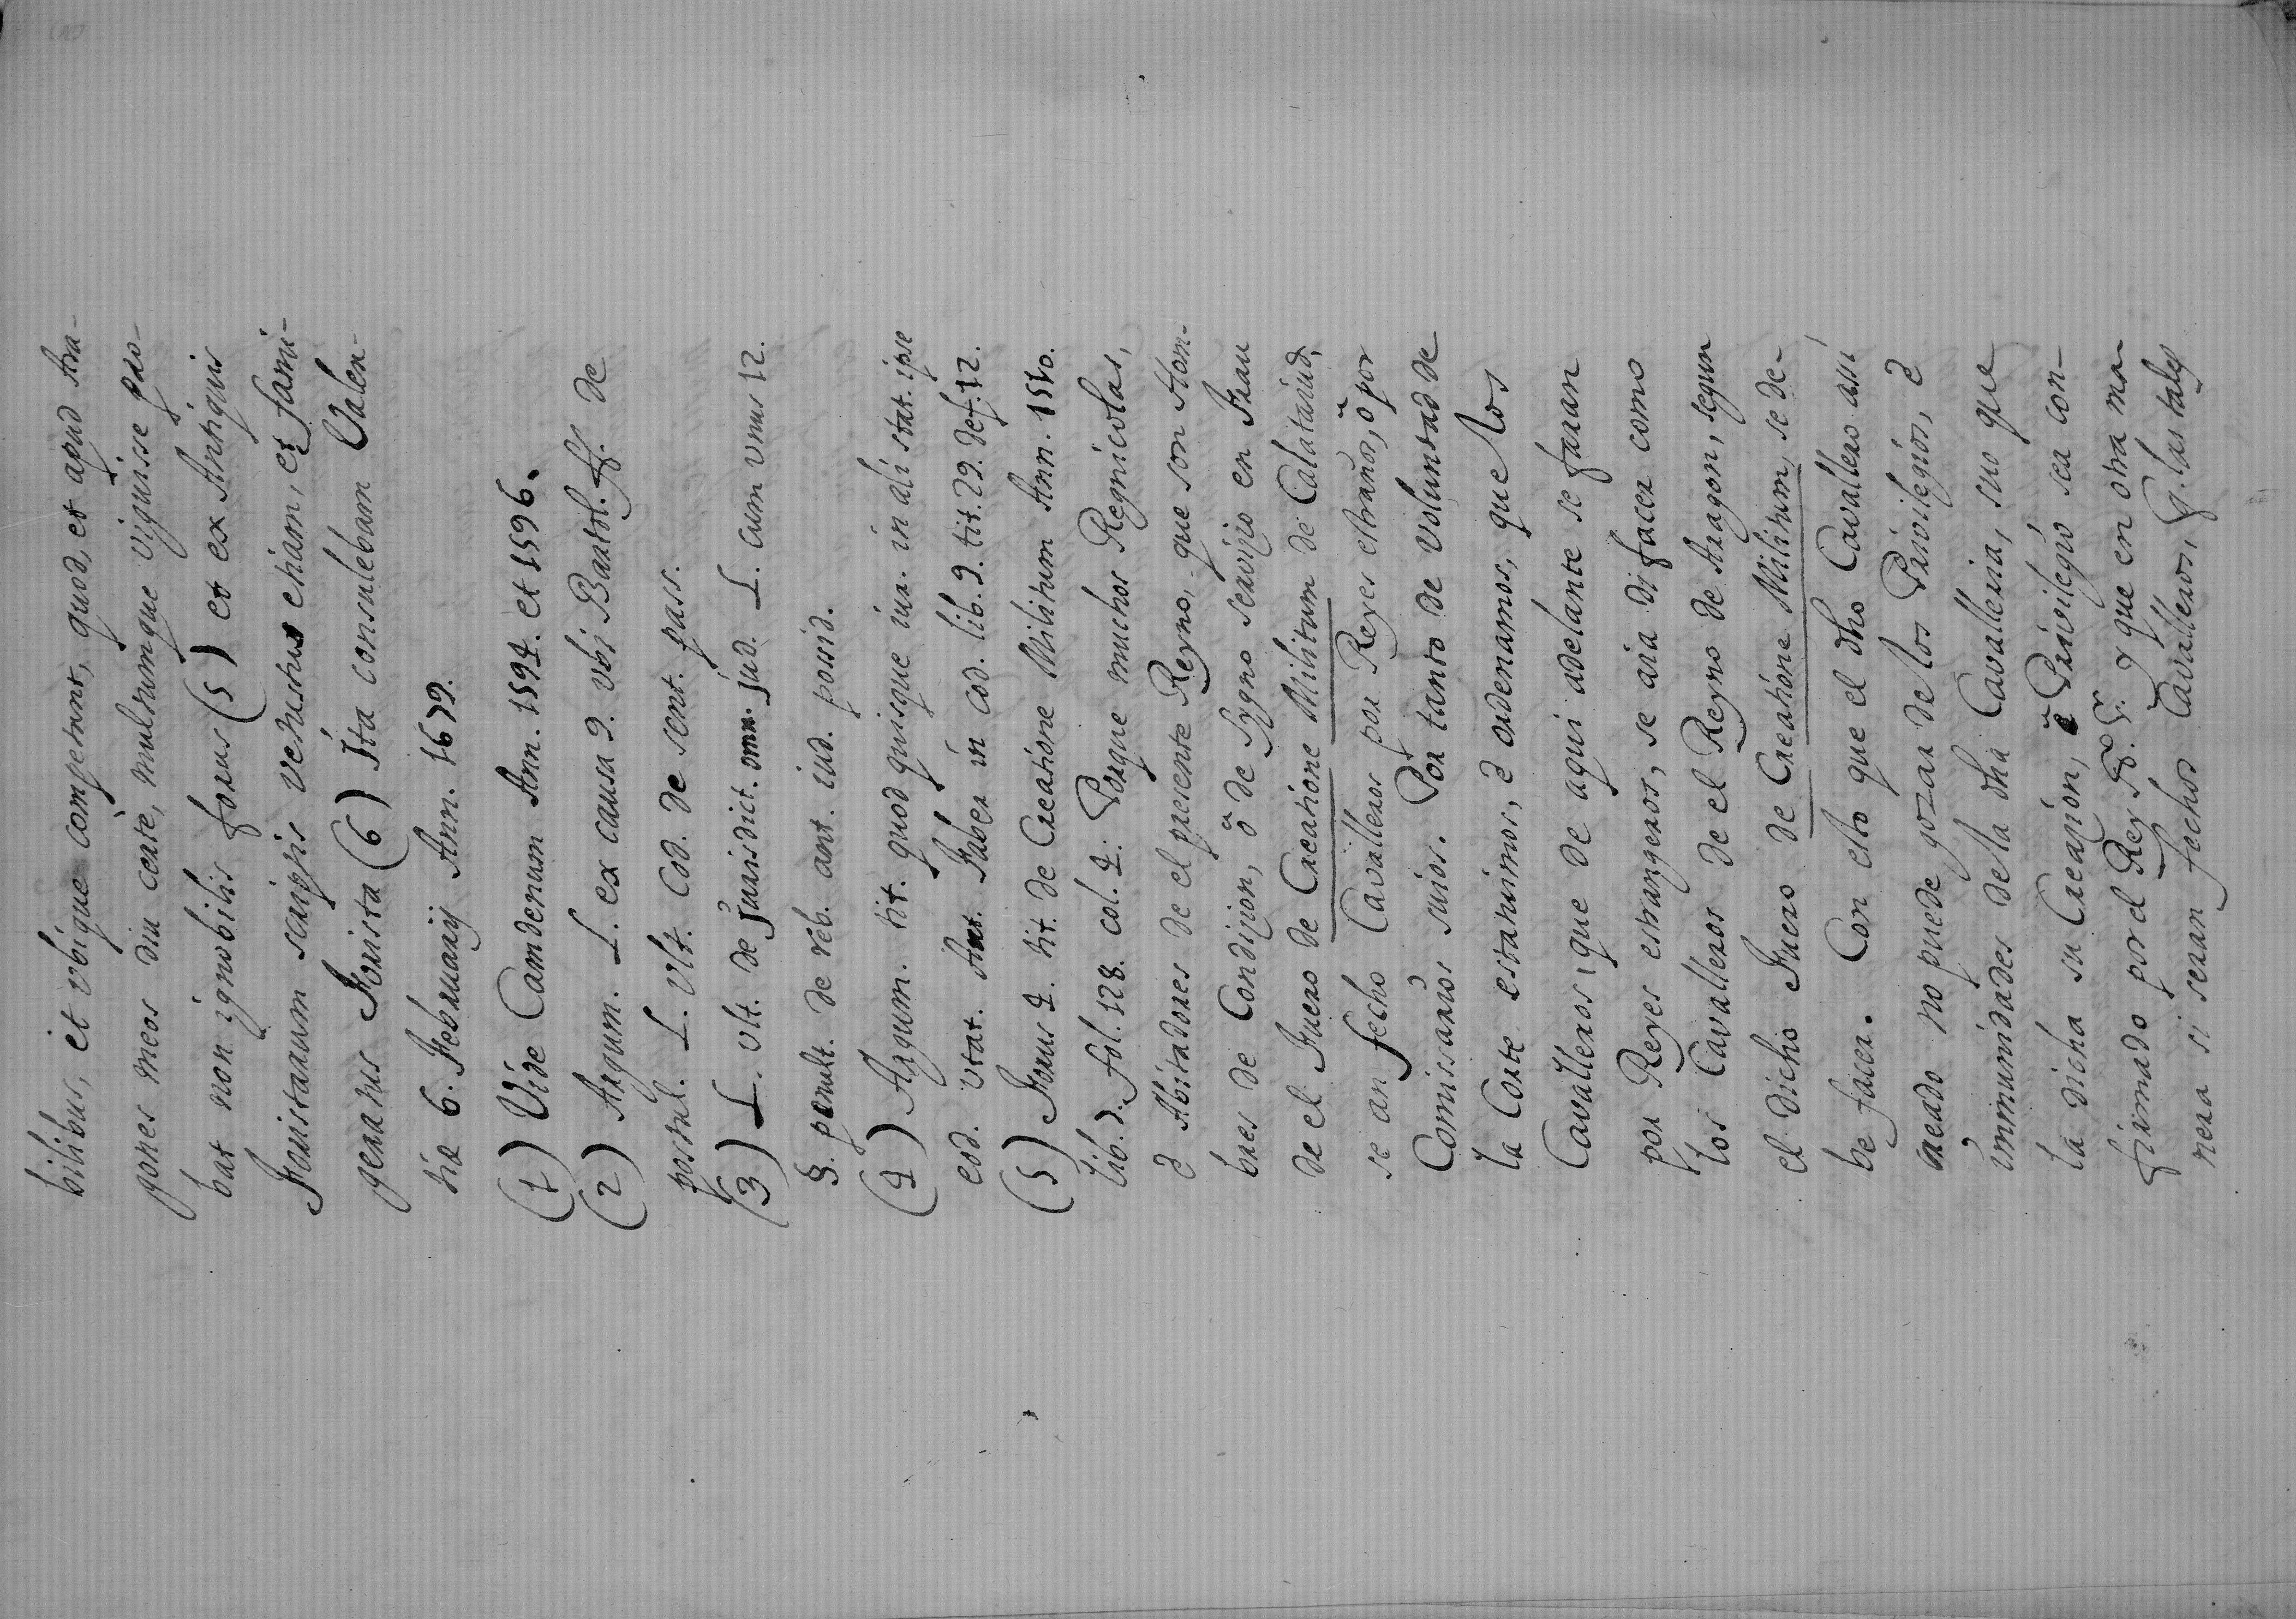 bilibus, et vbique competant, quod, et apud Ara-
gones meos diu certe, multumque viguisse pro-
bat non ignobilis forus (5) et ex Antiquis
Foristarum scriptis vetustus etiam, et fami-
geratus Forista (6) Ita consulebam Valen-
tiæ 6. Februarij Ann. 1679.
(1) Vide Camdenum Ann. 1594. et 1596.
(2) Argum. L. ex causa 9. vbi Bartol. ff. de
postul. L. vlt. Cod. de sent. pass.
(3) L. vlt. de Jurisdict. omn. jud. L. cum vnus 12.
§. penult. de reb. aut. iud. possid.
(4) Argum. tit. quod quisque iur. in ali stat. ipse
eod. vtat. Ant. Faber in cod. lib. 9. tit. 29. def. 12.
(5) Forus 4. tit. de Creatione Militum Ann. 1510.
lib. 7. fol. 128. col. 4. Porque muchos Regnicolas,
2 Abitadores de el presente Reyno, que son Hom-
bres de Condizion, ò de Sygno servizo en Frau
de el Fuero de Creatione Militum de Calataiud,
se an fecho Cavalleros por Reyes estraños, ò por
Comisarios suios. Por tanto de voluntad de
la Corte estatuimos, 2 ordenamos, que los
Cavalleros, que de aqui adelante se faran
por Reyes estrangeros, se aia di facer como
los Cavalleros de el Reyno de Aragon, segun
el dicho Fuero de Creatione Militum, se de-
be facer. Con esto que el dho Cavallero asi
creado no puede gozar de los Privilegios, 2
immunidades de la dha Cavalleria, sino que
la dicha su Creazion, è Privilegio sea con-
firmado por el Rey No. Sr. y que en otra ma-
nera si seran fechos Cavalleros, q. las tales